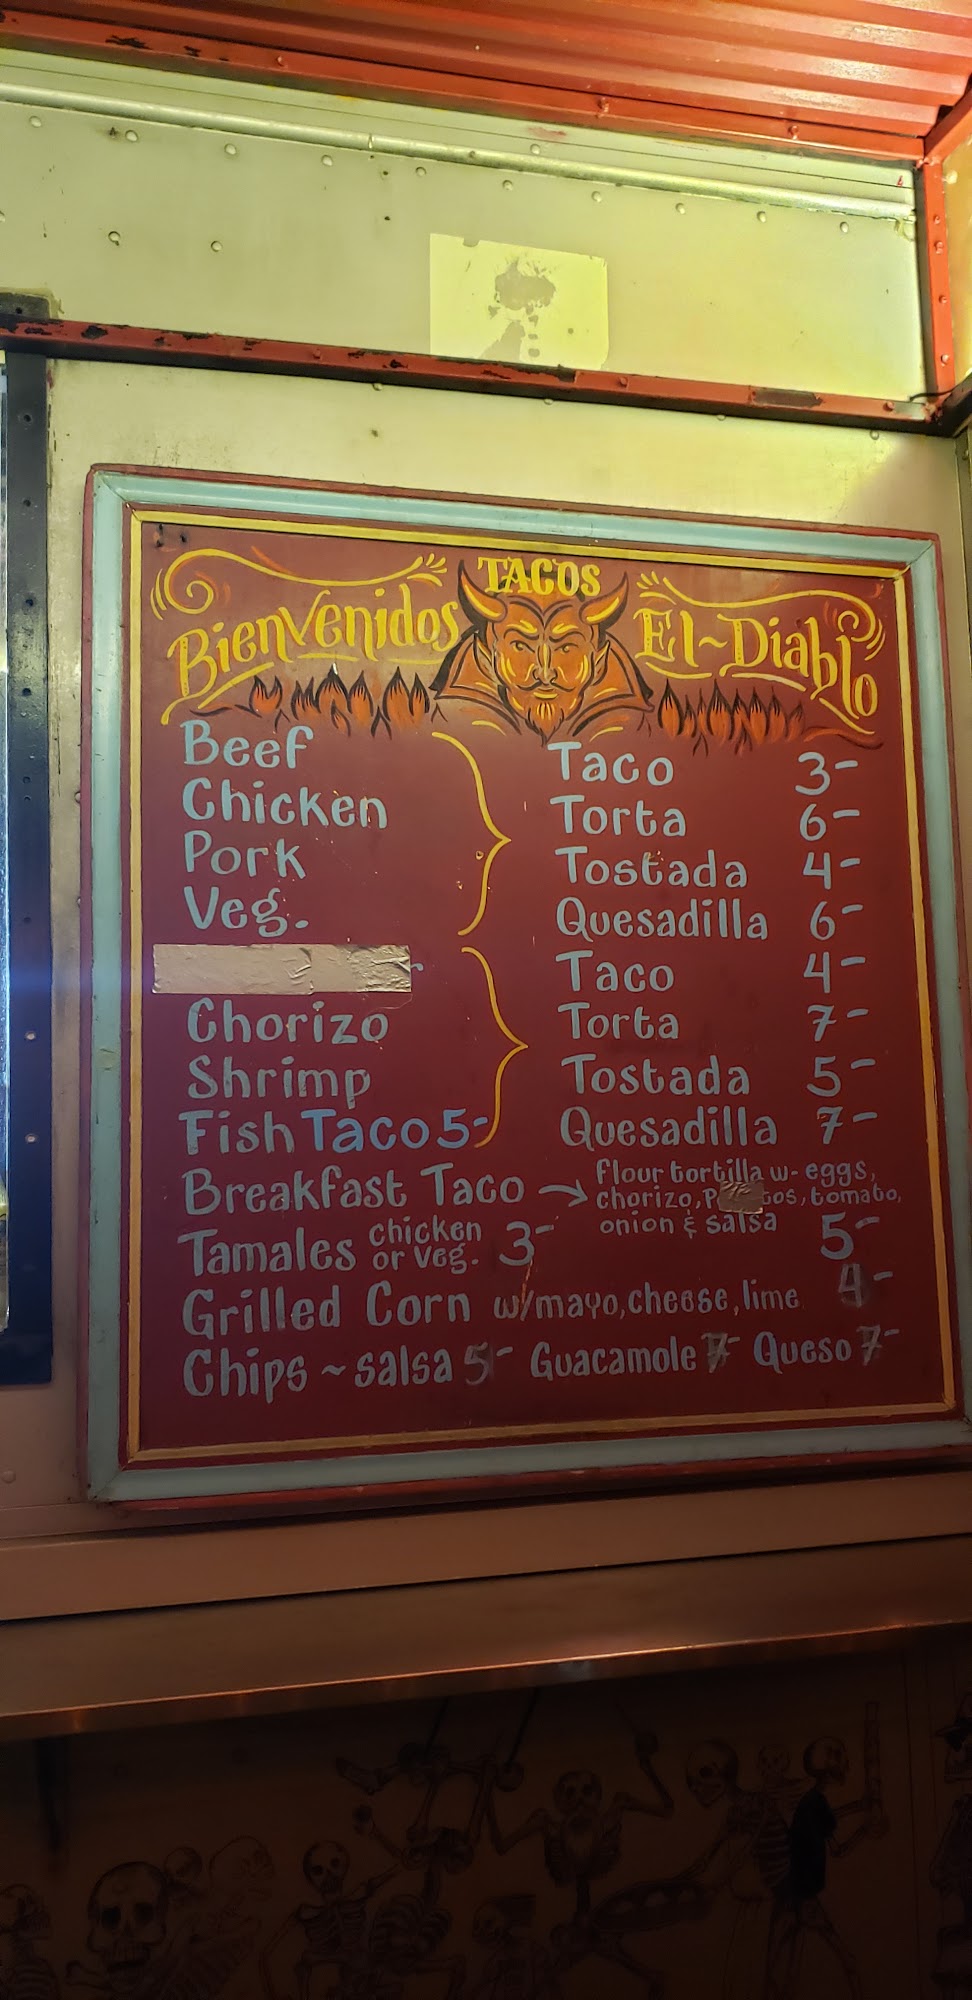 TACOS
Bienvenidos El~Diablo
Beef
Chicken
Pork
Veg.
Taco 3-
Torta 6-
Tostada 4-
Quesadilla 6-
Chorizo
Shrimp
Fish Taco 5-
Taco 4-
Torta 7-
Tostada 5-
Quesadilla 7-
Breakfast Taco → flour tortilla w- eggs,
chorizo, tomato,
onion & salsa 5-
Tamales chicken or veg. 3-
Grilled Corn w/mayo, cheese, lime 4-
Chips ~ salsa 5- Guacamole 7- Queso 7-